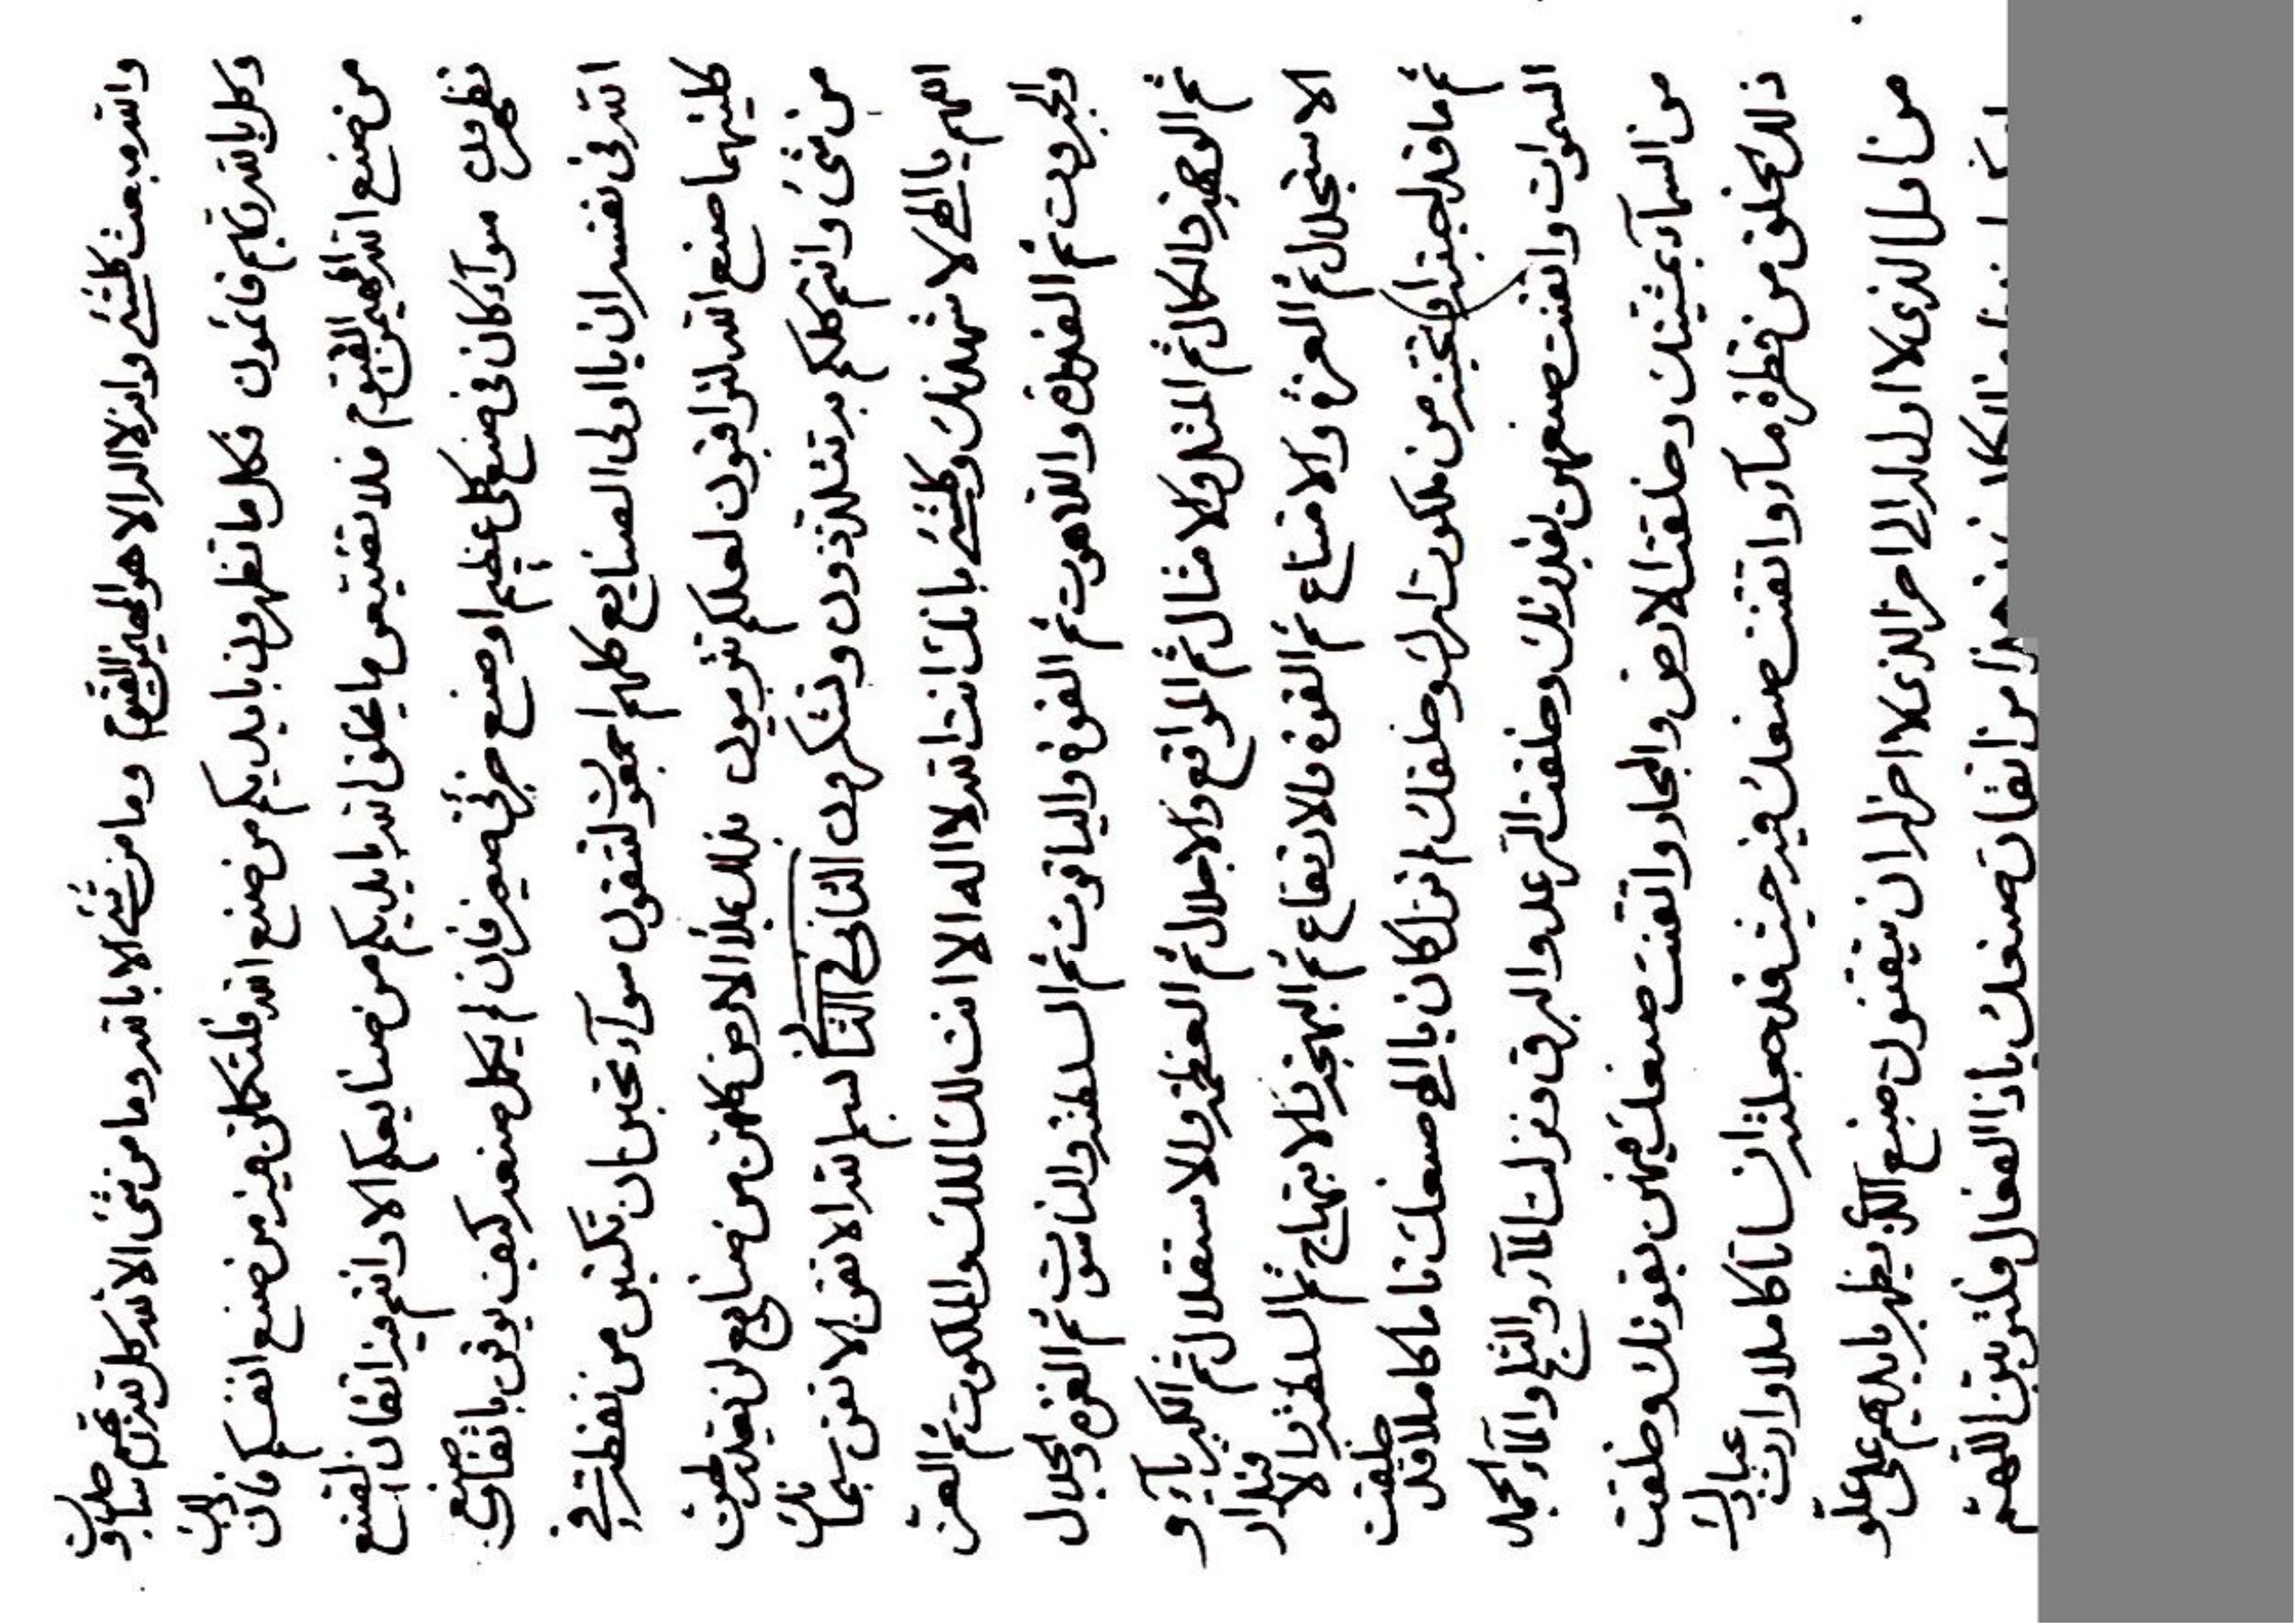 والله مبعث كلشيء وانه لا اله الا هو المهيمن القيوم وما من شيء الا بالله وما من شيء الا لله كل لله ثم بالله
وكل بالله ربهم قائمون فكل ما تظهرون بايديكم من صنع الله فلتكملن فيه من صنع انفسكم فان ذلك
من صنع الله المهيمن القيوم فلا تضيعن ما يخلق الله بايديكم من صنايعكم الا وانتم فيه اتقان الصنع
تظهرون سوآء كان في صنع كل عظيم او صنع جزئي صغير فان لم يكمل صنعه كيف يوقن باتقان صنع
الله في نفسه ان يا اولى الصنايع كلهم اجمعون لتتقون سوآء تخبرن ان تكتبن من نقطة في
كلتيهما صنع الله لتراقبون لعلكم تربون بذلك ملأ الارض كلهن من صنايع لن يعدلهن
من شئ وانتم كلكم به تتلذذون وتشكرون الثاني في الثاني بسم الله الاتقن الاتقن سبحانك
اللهم يا الهي لاشهدنك وكلشيء بانك انت الله لا اله الا انت لك الملك والملكوت ثم العز
والجبروت ثم القدرة واللاهوت ثم القوة والياقوت ثم السلطنة والناسوت ثم العزة والجلال
ثم الوجهة والكمال ثم المثل والامثال ثم المواقع والاجلال ثم العظمة والاستقلال ثم الكبرياء و
الاستجلال ثم العزة والامتناع ثم القوة والارتفاع ثم البهجة والابتهاج ثم السلطنة والاقتدار
ثم ما قد احببته او تحبنه من ملكوت امرك وخلقك انك كان يا الهي صنعك تاما كاملا قد خلقت
السموات واتقنت صنعهن بقدرتك وخلقت الرعد والبرق ونزلت المآء والثلج والمآء الجمد
من السمآء بمشيتك وخلقت الارض والبحار واتقنت صنعك فيهن بقوتك وخلقت
ذلك الخلق من قطرة مآء واتقنت صنعك فيه حيث قد جعلته انسانا كاملا واردت عبادك
من اول الذي لا اول له الى اخر الذي لا اخر له ان يتقنون صنع الذي يظهر بايديهم على علو
هذا من اتقان صنعك يا ذا الفعال فلتربين اللهم